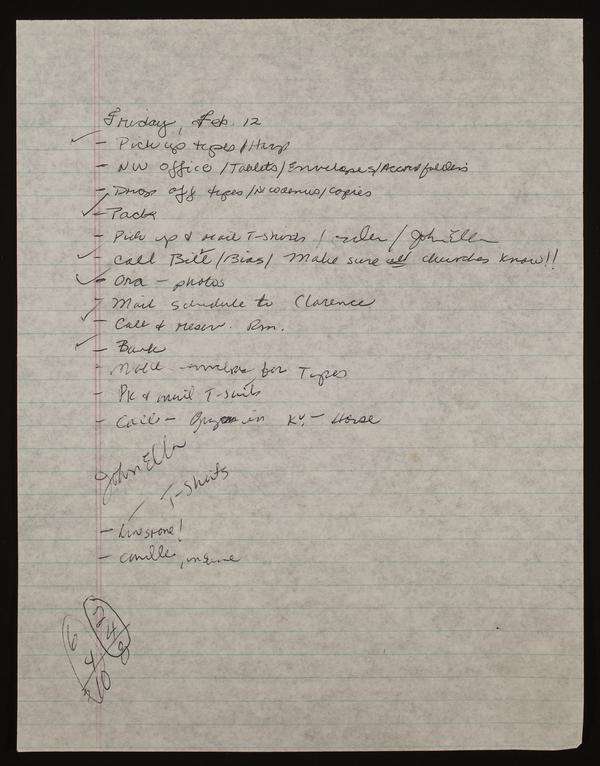 Friday, Feb. 12
- Pick up types/Harp
- NW Office/Tablets/Envelopes/Accord folders
- Drop off types/Nicodemus/copies
- Pack
- Pick up & mail T-shirts / / JohnElla
- Call Bill/Bias/ Make sure all churches know!!
- Ora - photos
- Mail schedule to Clarence
- Call & reserv. Rm.
- Bank
- Make envelope for Types
- PK & mail T-shirts
- Call - in Ky. - Horse
JohnElla
T-shirts
- Limestone!
- candles, incense
2 4 8
6 4 10